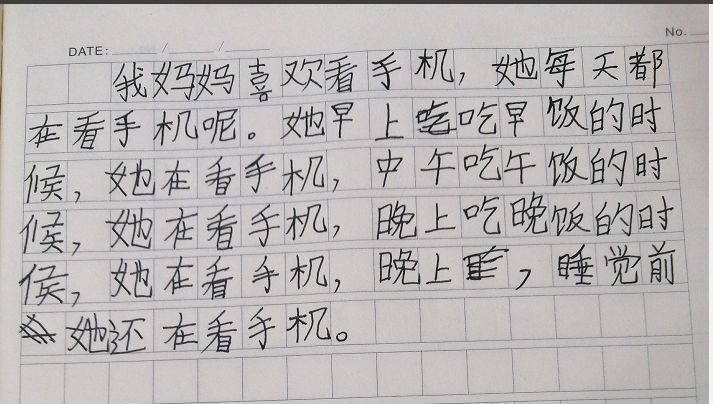 No.
DATE: / /
我妈妈喜欢看手机，她每天都
在看手机呢。她早上吃早饭的时
候，她在看手机，中午吃午饭的时
候，她在看手机，晚上吃晚饭的时
侯，她在看手机，晚上，睡觉前
她还在看手机。